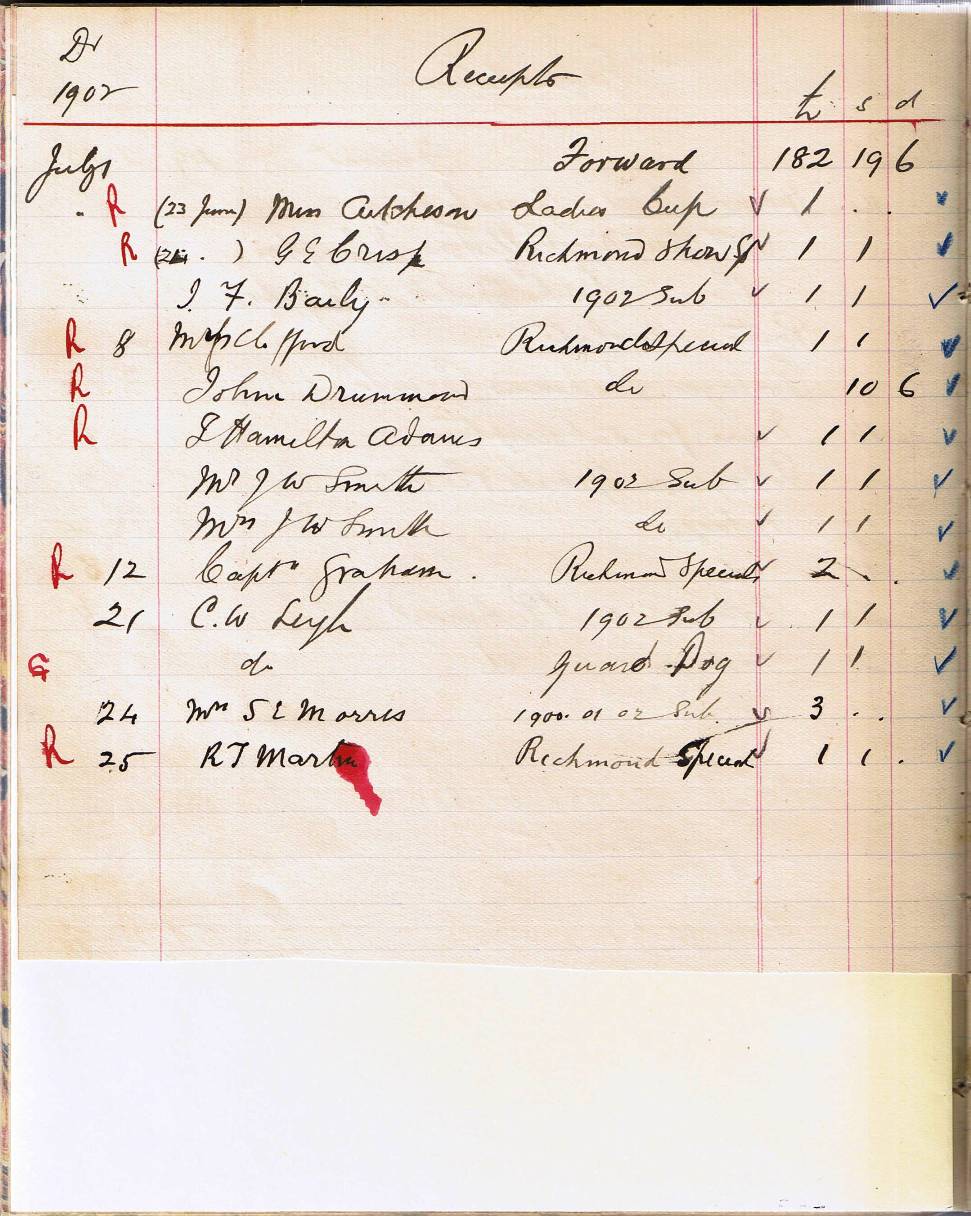 Dr
1902 Receipts £ s d
July 1 Forward 182 19 6
" R (23 June) Miss Aitcheson Ladies Cup 1 . .
R (24 . ) G E Crisp Richmond Show Sp 1 1
J. F. Baily 1902 Sub 1 1
R 8 Clifford Richmond Special 1 1
R John Drummond do 10 6
R Hamilton Adams 1 1
Mr J W Smith 1902 Sub 1 1
Mrs J W Smith do 1 1
R 12 Captn Graham . Richmond Special 2 . .
21 C. W Leigh 1902 Sub 1 1
G do Guard Dog 1 1
24 Mrs S E Morris 1900. 01 02 Sub. 3 . .
R 25 R T Martin Richmond Special 1 1 .